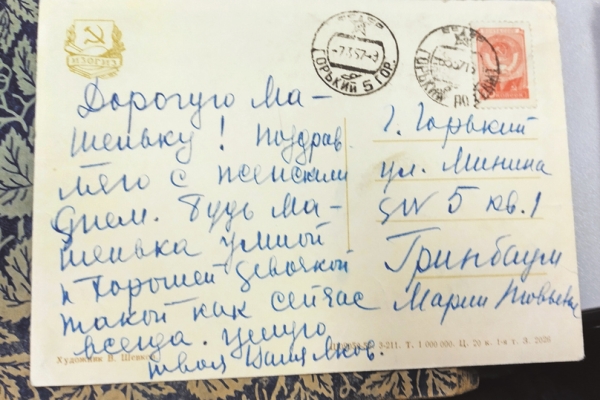 ИЗОГИЗ
-7.3.57-8
ГОРЬКИЙ 5 ГОР.
ГОРЬКИЙ ПО
Дорогую Ма-
шеньку! Поздрав
ляю с женским
днем. Будь Ма-
шенька умной
и хорошей девочкой
такой как сейчас
всегда. Целую
твоя
г. Горький
ул. Минина
5 кв. 1
Гринбаум
Марии
Художник В.
3-211. Т. 1 000 000. Ц. 20 к. 1-я т. З.